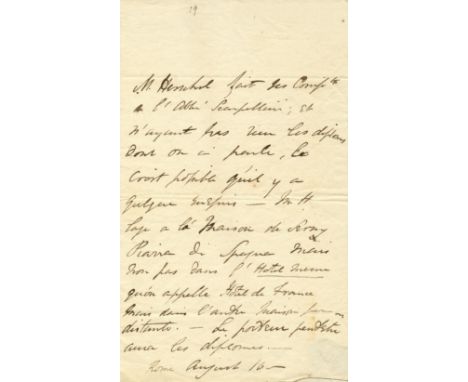 M. Herschel fait ses Compts
a l'Abbé Scarpellini; et
n'ayant pas reçu les diplomes
dont on a parlé, le
croit possible qu'il y a
quelque mepris — Mr H
loge a la maison de Serny
Piazza di Spagna mais
non pas dans l'Hotel meme
qu'on appelle Hotel de France
mais dans l'autre maison
distante. — Le porteur peut etre
aura les diplomes —
Rome August 16 —